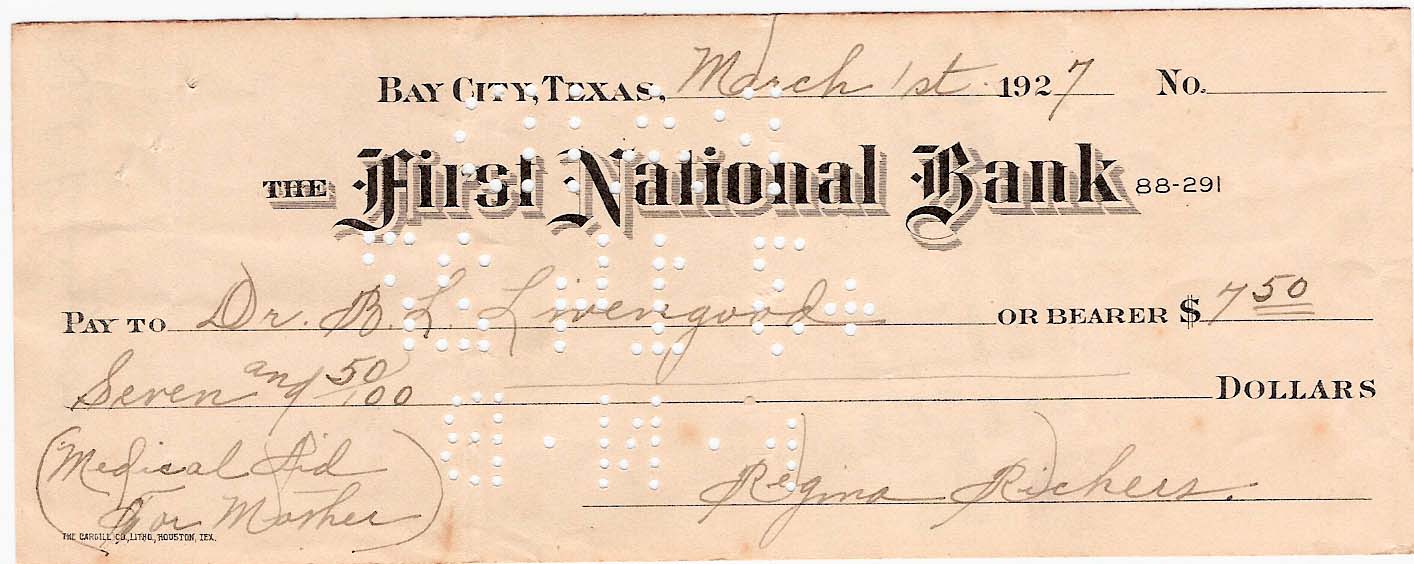 Bay City, Texas, March 1st 1927 No.
The First National Bank 88-291
Pay to Dr. B. L. Livengood or bearer $ 7 50
Seven and 50/100 Dollars
(Medical Aid
For Mother)
Regina Richers.
THE CARGILL CO., LITHO, HOUSTON, TEX.